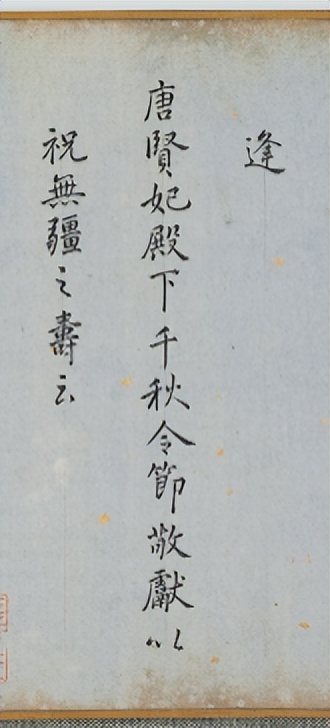 逢
唐賢妃殿下千秋令節敬獻以
祝無疆之壽云